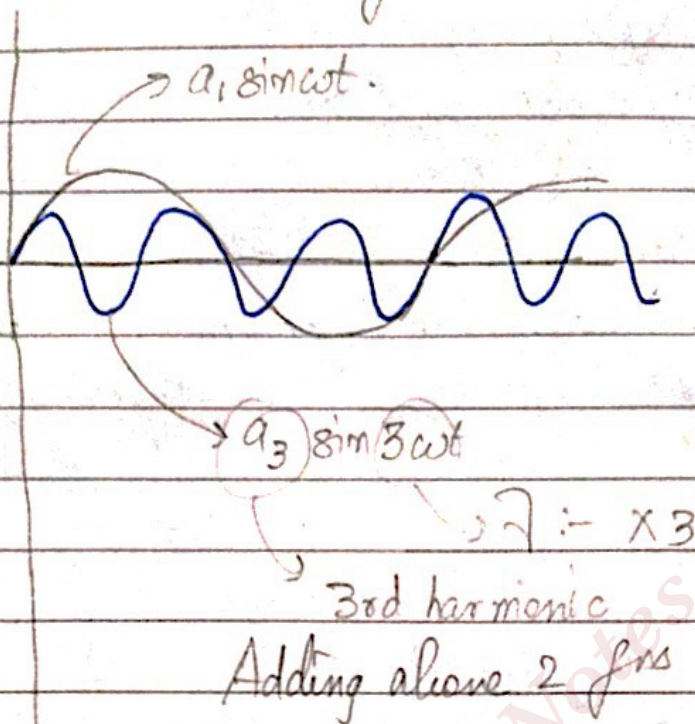 a₁ sinωt.
a₃ sin 3ωt
:- x3
3rd harmonic
Adding above 2 fns
Notes